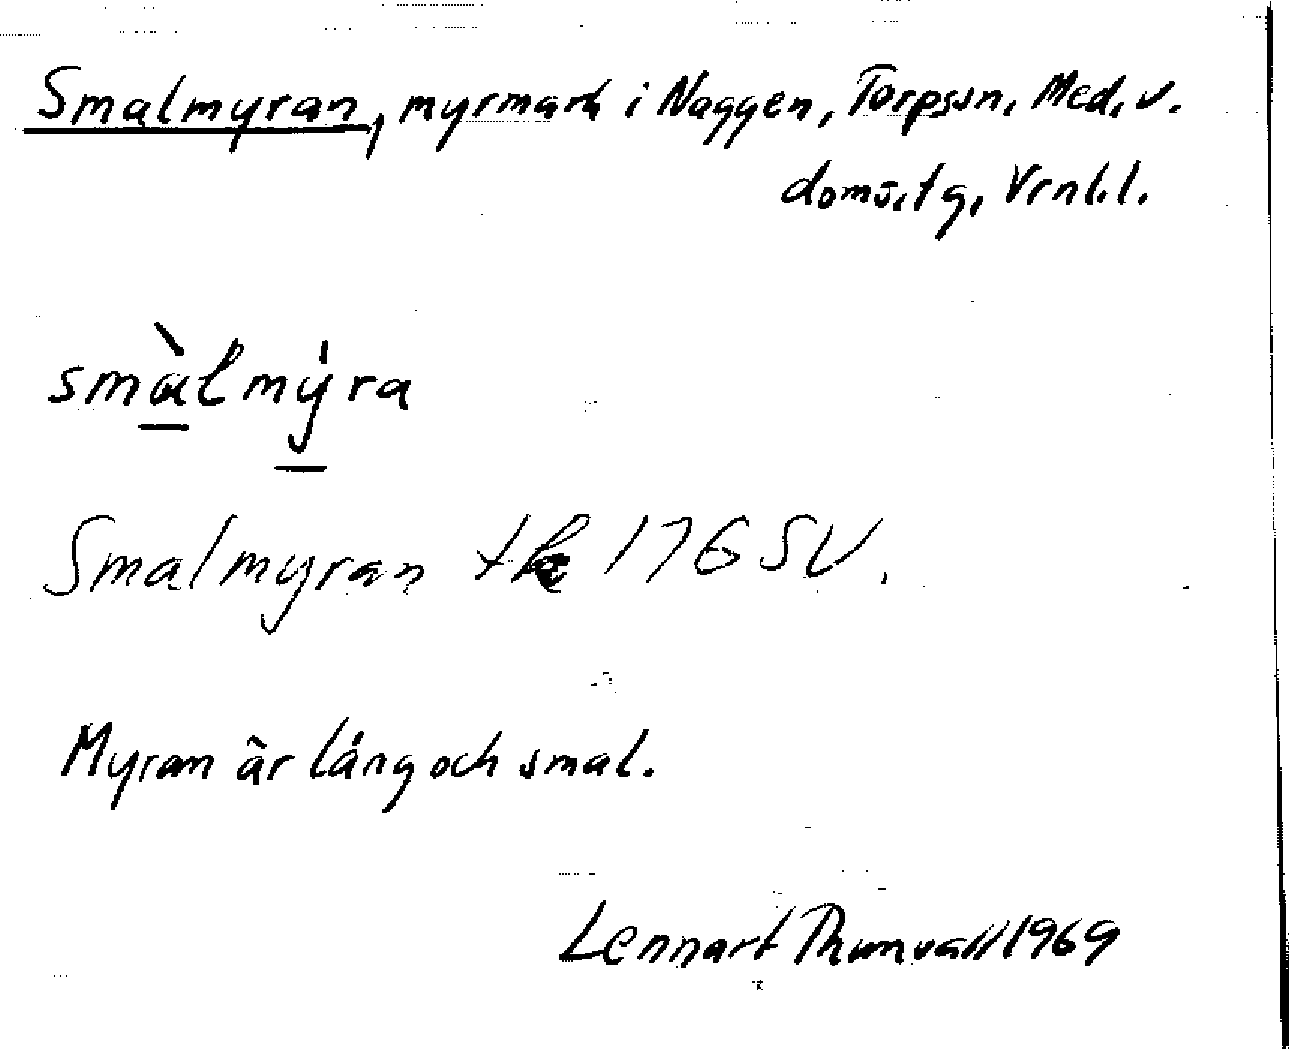 Smalmyran, myrmark i Naggen, Torpssn, Med. v.
doms.tg, Vrnl.l.
smàlmy̍ra
Smalmyran tk 176 SV.
Myran är lång och smal.
Lennart Thunvall 1969